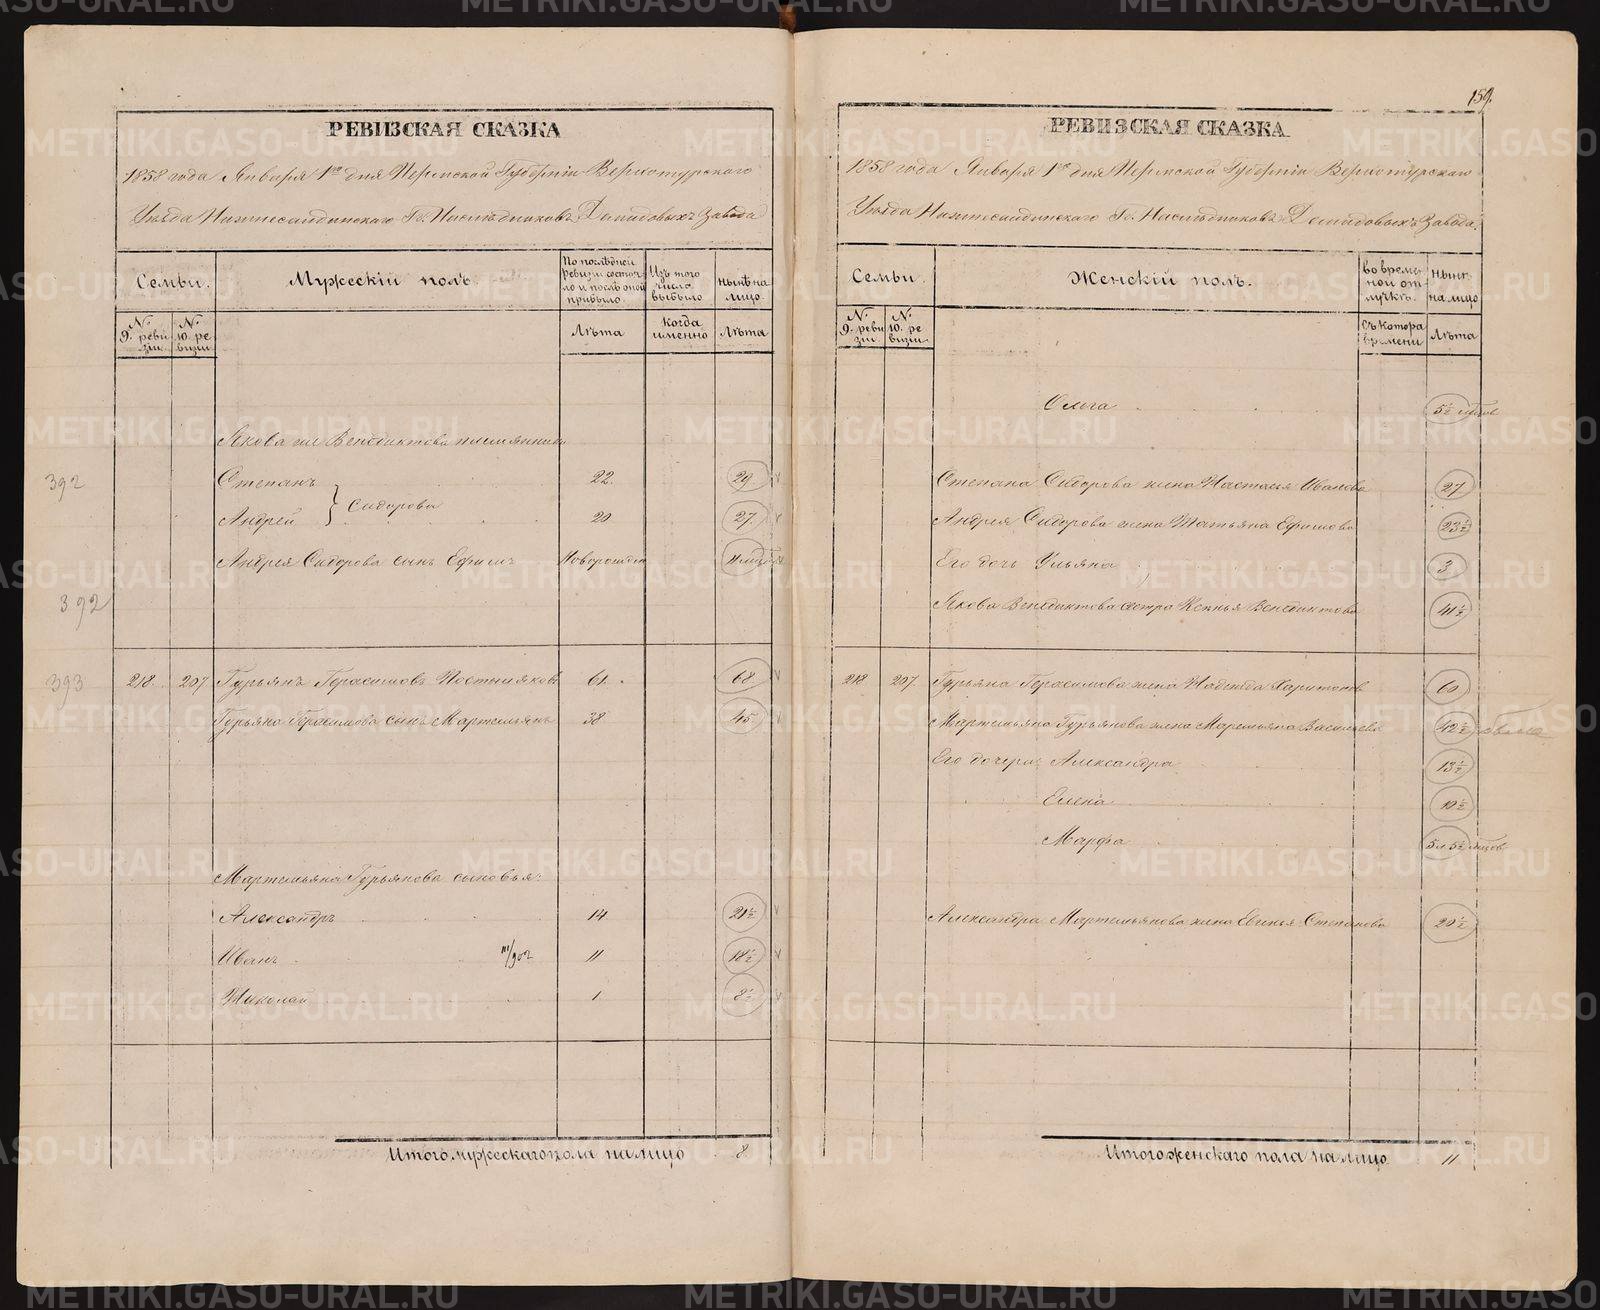 159.
РЕВИЗСКАЯ СКАЗКА
1858 года Января 1го дня Пермской Губерніи Верхотурскаго
Уѣзда Нижнесалдинскаго Гг. Наслѣдниковъ Демидовыхъ Завода
Семьи.
Мужескій полъ.
По послѣдней ревизіи состояло и послѣ оной прибыло
Изъ того числа выбыло
Нынѣ на лицо
№ 9. ревизіи.
№ 10. ревизіи
Лѣта
Когда именно
Лѣта
Якова же Венедиктова племянники
392 Степанъ 22. 29
Андрей } Сидорова 20 27
Андрея Сидорова сынъ Ефимъ Новорожден
392
393 218 207 Гурьянъ Герасимовъ Постниковъ 61. 68
Гурьяна Герасимова сынъ Мартемьянъ 38 45
Мартемьяна Гурьянова сыновья:
Александръ 14 21½
Иванъ 11 18½
Николай 1 8½
Итого мужескаго пола на лицо 8
РЕВИЗСКАЯ СКАЗКА
1858 года Января 1го дня Пермской Губерніи Верхотурскаго
Уѣзда Нижнесалдинскаго Гг. Наслѣдниковъ Демидовыхъ Завода.
Семьи.
Женскій полъ.
Во временной отлучкѣ.
Нынѣ на лицо
№ 9. ревизіи.
№ 10. ревизіи
Съ котора времени
Лѣта
Ольга
Степана Сидорова жена Настасья Иванова 27
Андрея Сидорова жена Татьяна Ефимова 23½
Его дочь Ульяна 3
Якова Венедиктова сестра Ксенья Венедиктова 41½
218 207 Гурьяна Герасимова жена Надежда Харитонов 60
Мартемьяна Гурьянова жена Маремьяна Васильева 42½
Его дочери: Александра 13½
Елена 10½
Марфа
Александра Мартемьянова жена Евгенья Степанова 20½
Итого женскаго пола на лицо 11
METRIKI.GASO-URAL.RU